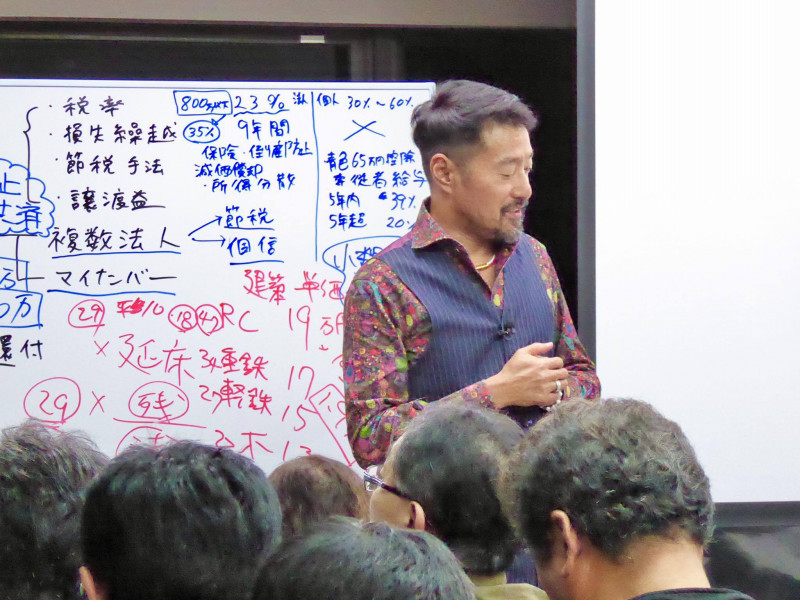 ・税率
・損失繰越
・節税手法
・譲渡益
複数法人
マイナンバー
節税
個信
800 23% 法
35% 9年間
保険・倒産防止
減価償却
・所得分散
個人 30%~60%
青色65万円控除
専従者給与
5年内 39%
5年超 20%
建築単価
29 18 47 RC 19万
×延床 34 重鉄 17
29 × 残 27 軽鉄 15
木 13
還付